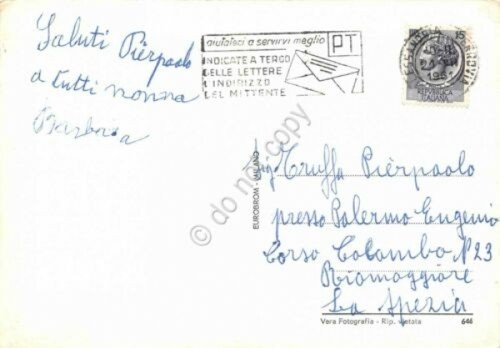 Saluti Pierpaolo
a tutti nonna
Barbera
aiutateci a servirvi meglio
PT
INDICATE A TERGO
DELLE LETTERE
L'INDIRIZZO
DEL MITTENTE
15
Sig. Truffa Pierpaolo
presso Palermo Eugenio
Corso Colombo N° 23
Riomaggiore
La Spezia
EUROBROM - MILANO
Vera Fotografia - Rip. vietata
646
© do not copy